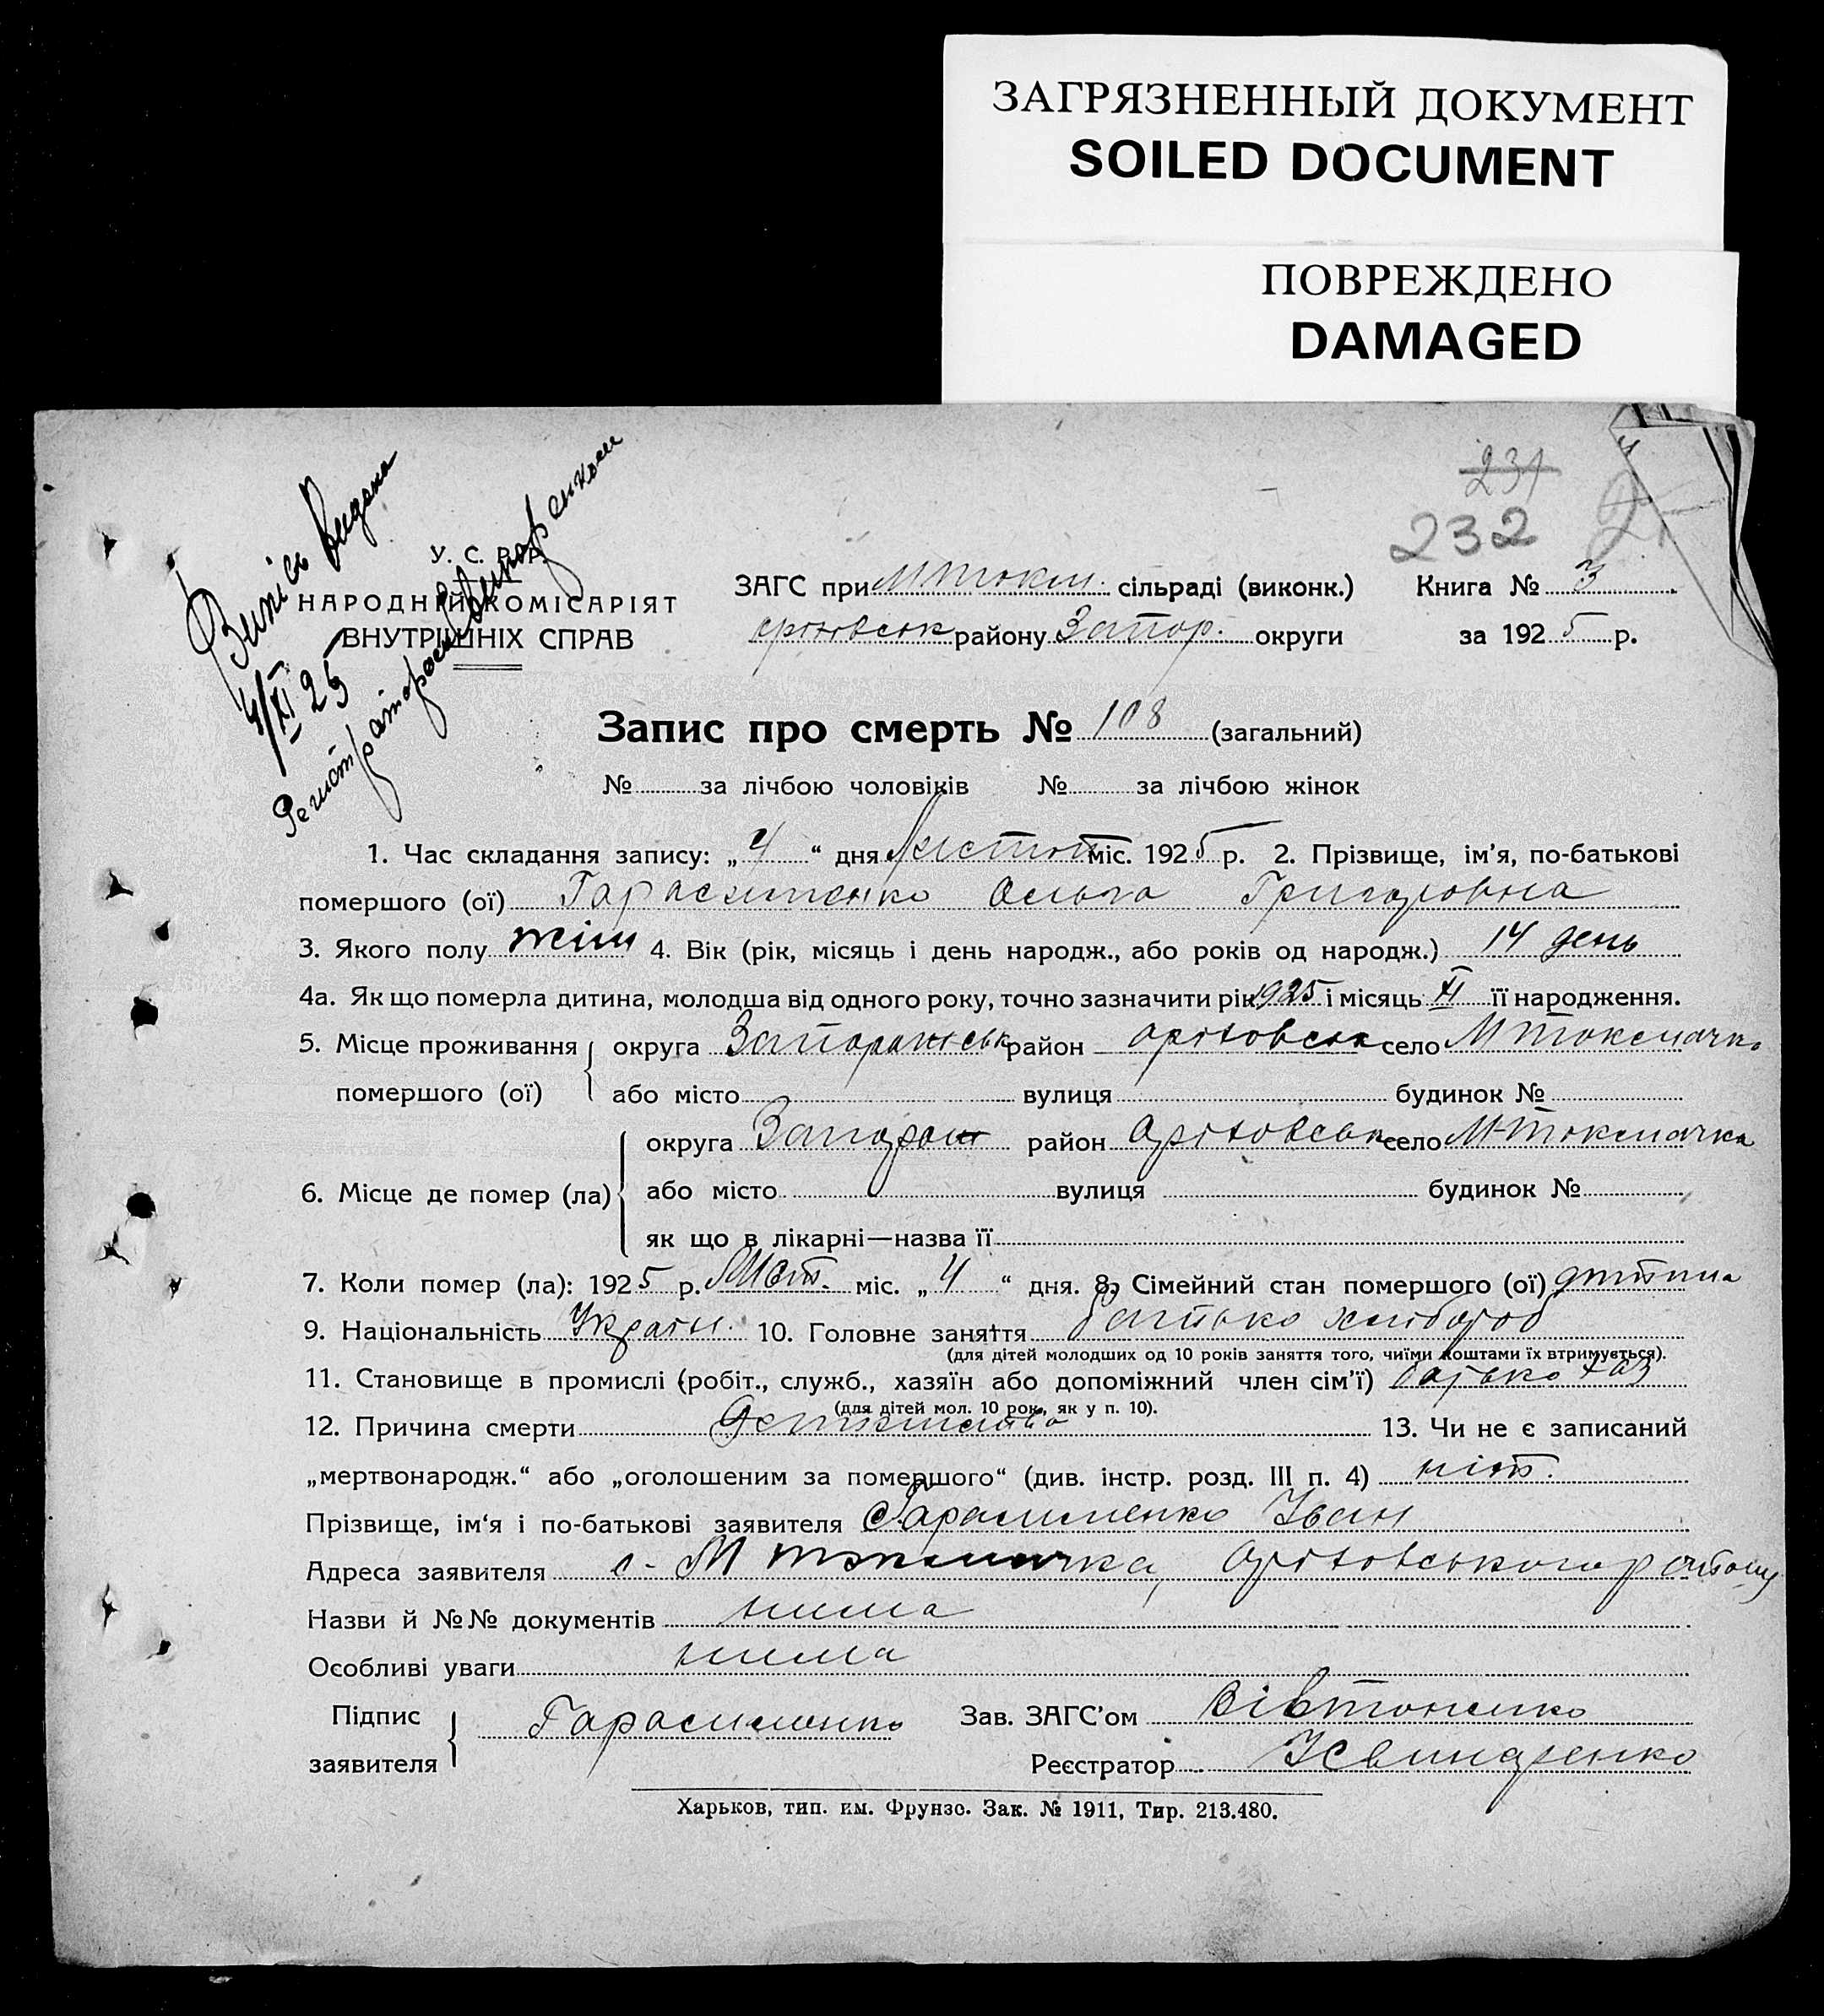 ЗАГРЯЗНЕННЫЙ ДОКУМЕНТ
SOILED DOCUMENT
ПОВРЕЖДЕНО
DAMAGED
231
232
Випись видана
4/XI 25
Реистратором Свинаренком
У. С. Р. Р.
НАРОДНІЙ КОМІСАРІЯТ
ВНУТРІШНІХ СПРАВ
ЗАГС при МТокм. сільраді (виконк.) Книга № 3
оріхівськ району Запор. округи за 1925 р.
Запис про смерть № 108 (загальний)
№ за лічбою чоловіків № за лічбою жінок
1. Час складання запису: „4“ дня Листоп міс. 1925 р. 2. Прізвище, ім’я, по-батькові
помершого (ої) Гарасименко Ольга Григоровна
3. Якого полу жін 4. Вік (рік, місяць і день народж., або років од народж.) 14 день
4а. Як що померла дитина, молодша від одного року, точно зазначити рік 1925 і місяць XI її народження.
5. Місце проживання округа Запорожськ район оріховськ село М Токмачка
помершого (ої) або місто вулиця будинок №
округа Запорож район Оріховськ село М-Токмачка
6. Місце де помер (ла) або місто вулиця будинок №
як що в лікарні—назва її
7. Коли помер (ла): 1925 р. міс. „4“ дня. 8. Сімейний стан помершого (ої) дитина
9. Національність Украін. 10. Головне заняття батько хлібороб
(для дітей молодших од 10 років заняття того, чиїми коштами їх втримується).
11. Становище в промислі (робіт., служб., хазяїн або допоміжний член сім’ї) батько хаз
(для дітей мол. 10 рок., як у п. 10).
12. Причина смерти 13. Чи не є записаний
„мертвонародж.“ або „оголошеним за померлого“ (див. інстр. розд. III п. 4) ніт.
Прізвище, ім‘я і по-батькові заявителя Гарасименко Іван
Адреса заявителя с. М Токмачка, Оріховського району
Назви й №№ документів нима
Особливі уваги нима
Підпис заявителя Гарасименко Зав. ЗАГС’ом Вівтоненко
Реєстратор Свинаренко
Харьков, тип. им. Фрунзе. Зак. № 1911, Тир. 213.480.